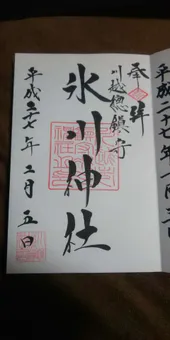 平成二十七年一月
奉拝
川越惣鎮守
氷川神社
平成二十七年二月五日